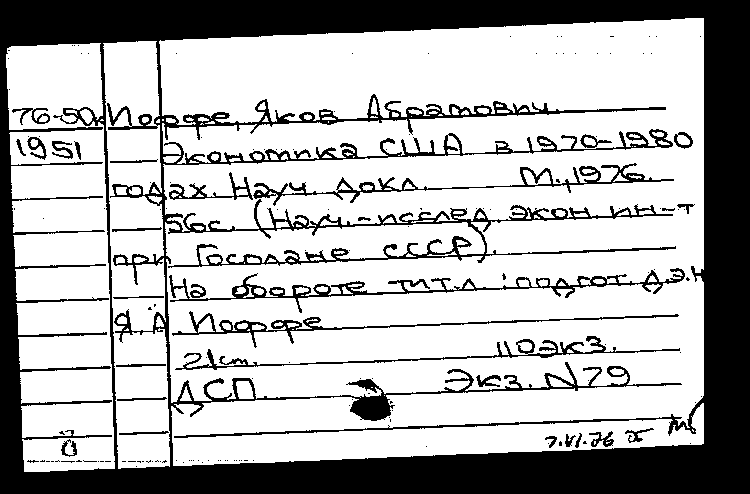 76-50к Иоффе, Яков Абрамович.
1951 Экономика США в 1970-1980
годах. Науч. докл. М., 1976.
56с. (Науч.-исслед. экон. ин-т
при Госплане СССР).
На обороте тит.л.: подгот. д.э.н
Я.А. Иоффе
21см. 110экз.
ДСП. Экз. N79
7.VI.76